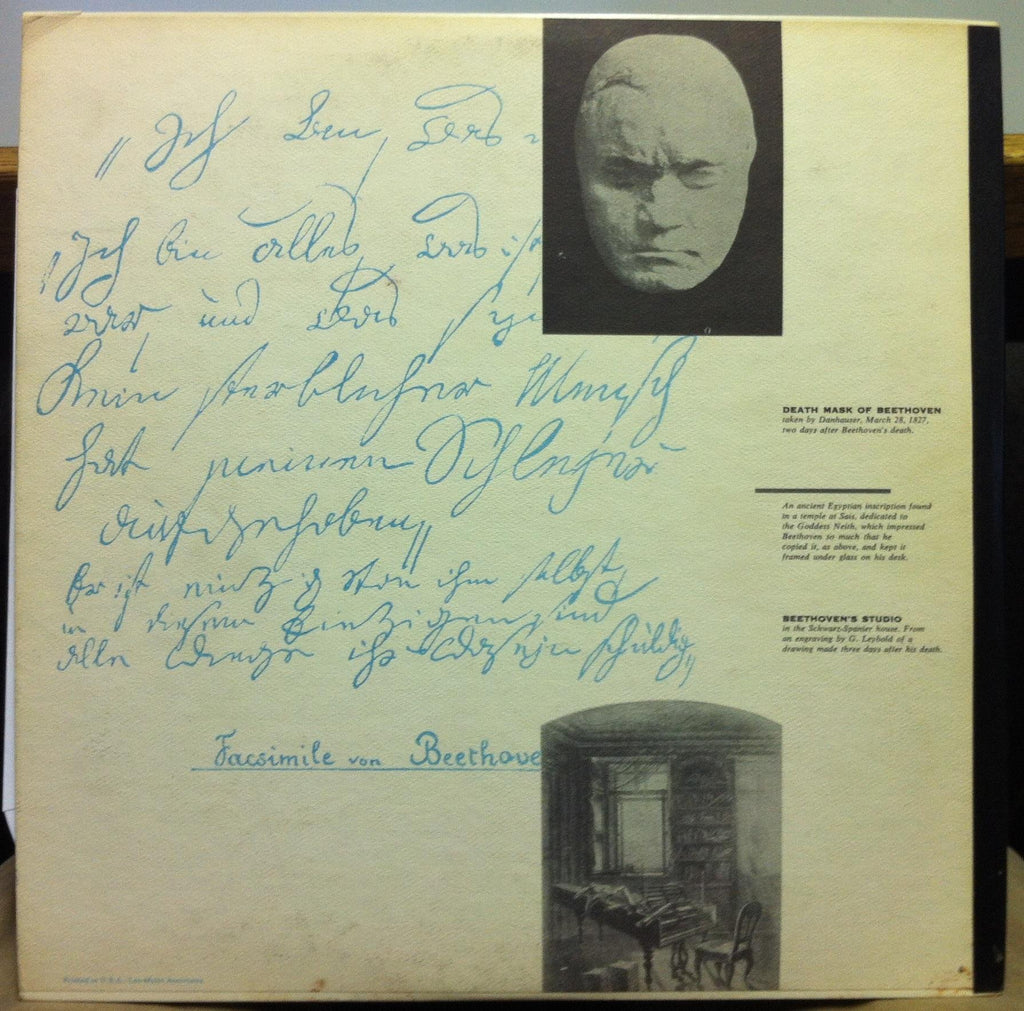 „Ich bin, was
„Ich bin alles, was ist,
war, und was
Kein sterblicher Mensch
hat meinen Schleyer
aufgehoben"
Er ist einzig von ihm selbst,
u. diesem Einzigen sind
alle Dinge ihr Daseyn schuldig"
Facsimile von Beethove
DEATH MASK OF BEETHOVEN
taken by Danhauser, March 28, 1827,
two days after Beethoven's death.
An ancient Egyptian inscription found
in a temple at Sais, dedicated to
the Goddess Neith, which impressed
Beethoven so much that he
copied it, as above, and kept it
framed under glass on his desk.
BEETHOVEN'S STUDIO
in the Schwarz-Spanier house. From
an engraving by G. Leybold of a
drawing made three days after his death.
Printed in U.S.A.